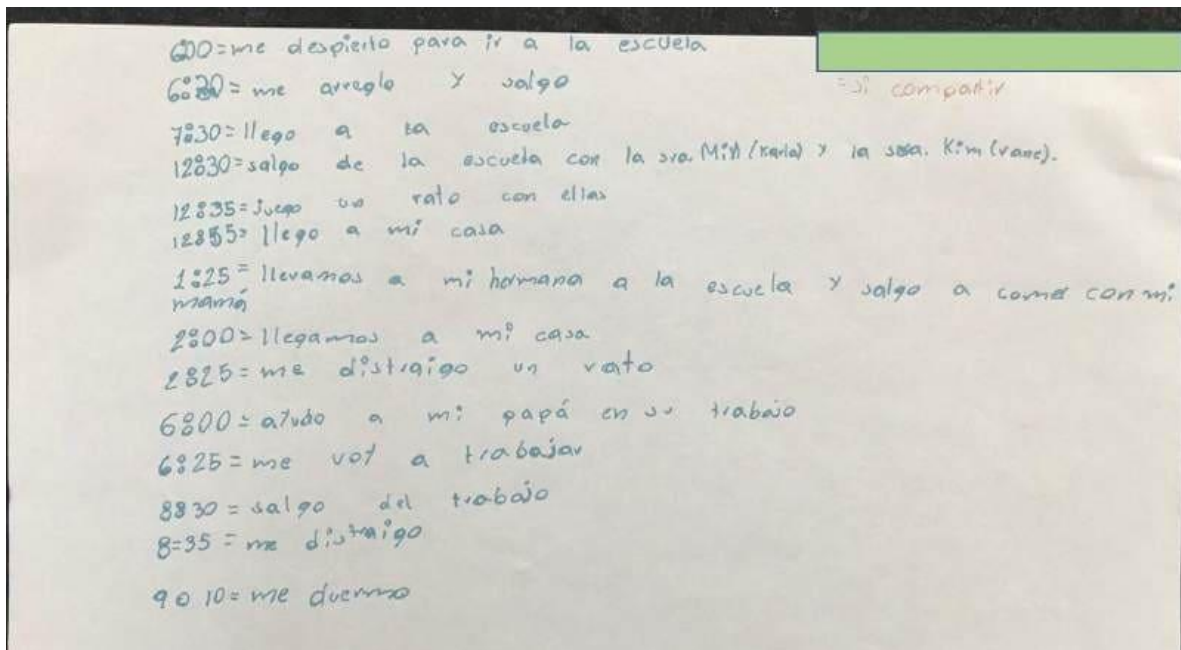 6:00=me despierto para ir a la escuela
=si compartir
6:30= me arreglo y salgo
7:30=llego a la escuela
12:30=salgo de la escuela con la sra. Min (Karla) y la sra. Kim (vane).
12:35=juego un rato con ellas
12:55= llego a mi casa
1:25= llevamos a mi hermana a la escuela y salgo a comer con mi
mamá
2:00= llegamos a mi casa
2:25=me distraigo un rato
6:00= ayudo a mi papá en su trabajo
6:25= me voy a trabajar
8:30= salgo del trabajo
8=35= me distraigo
9 o 10= me duermo